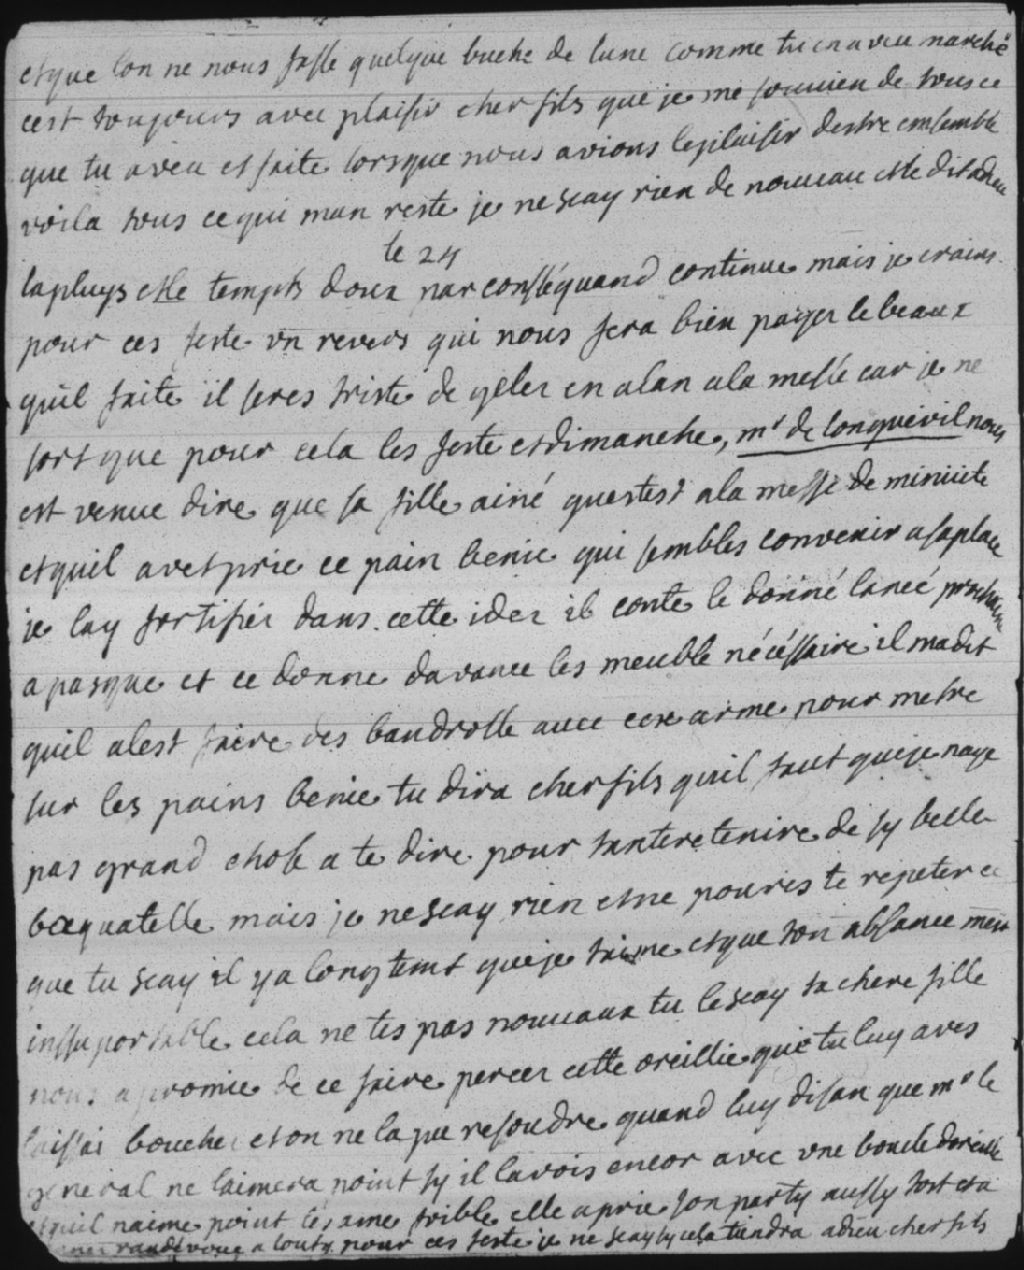 et que lon ne nous fasse quelque buche de lune comme tu en a veu marché
cest toujours avec plaisir cher fils que je me souvien de tous ce
que tu a veu et faite lorsque nous avions le plaisir destre ensemble
voila tous ce qui man reste je ne scay rien de nouveau et te dit adieu
le 24
la pluys et le tempts doux par consséquand continue mais je crains
pour ces feste un revers qui nous fera bien payer le beaux
quil faite il seres triste de geler en alan a la messe car je ne
sort que pour cela les feste et dimanche, mr de longuevil nous
est venue dire que sa fille ainé questest a la messe de miniute
et quil avet prie ce pain benie qui sembles convenir a sa place
je lay fortifier dans cette idez il conte le donné lanée prochaine
a pasque et ce donne davance les meuble nécéssaire il ma dit
quil alest faire des bandrolle avec ces arme pour metre
sur les pains benie tu dira cher fils quil faut que je naye
pas grand chose a te dire pour tantretenire de sy belle
bagatelle mais je ne scay rien et ne poures te repeter ce
que tu scay il y a longtems que je taime et que ton absance mest
inssuportable cela ne tes pas nouveaux tu le scay ta chere fille
nous a promie de ce faire percer cette oreillie que tu luy aves
laissai boucher et on ne la pu resoudre quand luy disan que mr le
general ne laimera point sy il lavois encor avec une boucle doreille
et quil naime point les ame foible elle a prie son party aussy tost et a
randevoue a louty pour ces feste je ne scay sy cela tiendra adieu cher fils